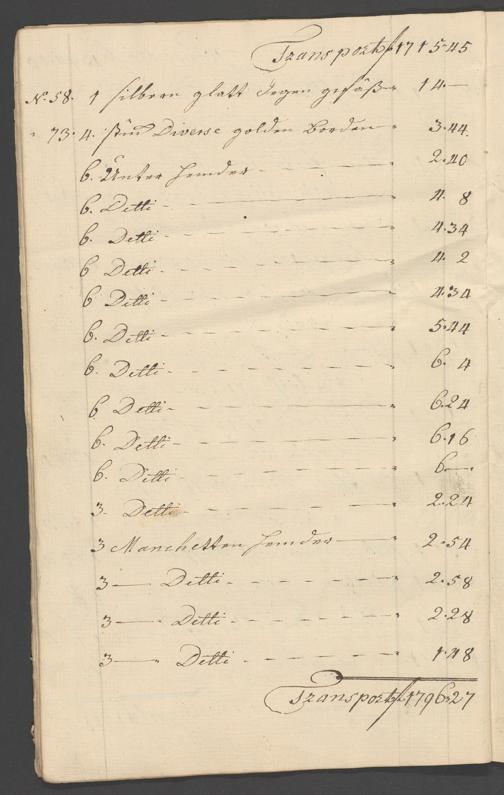 Transport f 1715·45
No. 58. 1 silbern glatt Degen gefäß " 14 —
" 73. 4. stuck Diverse golden Borden " 3·44.
6. Unter hemder " 2·40
6. Detti " 4. 8
6. Detti " 4·34
6 Detti " 4. 2
6. Detti " 4·34
6. Detti " 5·44
6. Detti " 6. 4
6 Detti " 6·24
6. Detti " 6·16
6. Detti " 6 —
3. Detti " 2·24
3 Manchetten hemder " 2·54
3 — Detti " 2·58
3 — " Detti " 2·28
3 — " Detti " 1·48
Transport f 1796·27